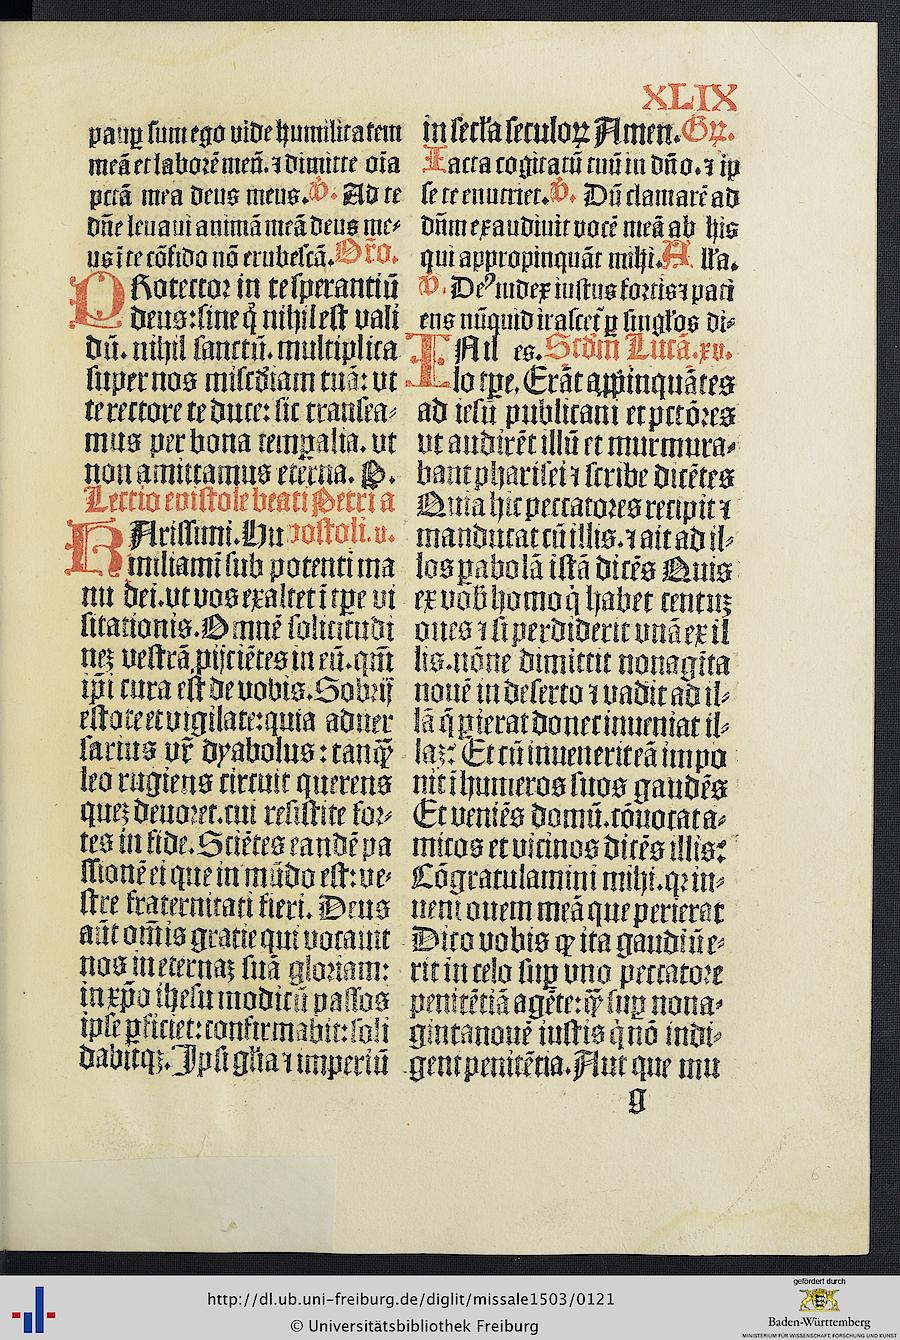 XLIX
paup̱ sum ego vide humilitatem
meā et laborē meū. ⁊ dimitte oīa
pctā mea deus meus. v̄. Ad te
dn̄e leuaui animā meā deus me⸗
us ī te cōfido nō erubescā. Or̄o.
PRotector in te sperantiū
deus: sine q̄ nihil est vali
dū. nihil sanctū. multiplica
super nos miscd̄iam tuā: vt
te rectore te duce: sic transea⸗
mus per bona temp̱alia. vt
non amittamus eterna. P.
Lectio epistole beati Petri a
postoli. v.
KArissimi. Hu
miliamini sub potenti ma
nu dei. vt vos exaltet ī tp̄e vi
sitationis. Omnē solicitudi
neꝫ vestrā ꝓijciētes in eū. qm̄
ip̄i cura est de vobis. Sobrij
estote et vigilate: quia aduer
sarius vr̄ dyabolus: tanqꝫ
leo rugiens circuit querens
queꝫ deuoret. cui resistite for⸗
tes in fide. Sciētes eandē pa
ssionē ei que in mūdo est: ve⸗
stre fraternitati fieri. Deus
aūt om̄is gratie qui vocauit
nos in eternaꝫ suā gloriam:
in xp̄o ihesu modicū passos
ipse ꝑficiet: confirmabit: soli
dabitqꝫ. Ipsi gl̄ia ⁊ imperiū
in secl̄a seculoꝝ Amen. Gꝝ.
Iacta cogitatū tuū in dn̄o. ⁊ ip
se te enutriet. v̄. Dū clamarē ad
dn̄m exaudiuit vocē meā ab his
qui appropinquāt mihi. A ll̄a.
v̄. De⁹ iudex iustus fortis ⁊ pati
ens nūquid irascet᷑ ꝑ singl̄os di⸗
es. Scdm̄ Lucā. xv.
IN il
lo tp̄e. Erāt app̄inquātes
ad iesū publicani et pctōres
vt audirēt illū et murmura⸗
bant pharisei ⁊ scribe dicētes
Quia hic peccatores recipit ⁊
manducat cū illis. ⁊ ait ad il⸗
los ꝑabolā istā dicēs Quis
ex vob̄ homo q̄ habet centuꝫ
oues ⁊ si perdiderit vnā ex il
lis. nōne dimittit nonagīta
nouē in deserto ⁊ vadit ad il⸗
lā q̄ ꝑierat donec inueniat il⸗
laꝫ: Et cū inuenerit eā impo
nit ī humeros suos gaudēs
Et veniēs domū. cōuocat a⸗
micos et vicinos dicēs illis:
Cōgratulamini mihi. qꝛ in⸗
ueni ouem meā que perierat
Dico vobis ꝙ ita gaudiū e⸗
rit in celo sup̱ vno peccatore
penitētiā agēte: qꝫ sup̱ nona⸗
gintanouē iustis q̄ nō indi⸗
gent penitētia. Aut que mu
g
http://dl.ub.uni-freiburg.de/diglit/missale1503/0121
© Universitätsbibliothek Freiburg
gefördert durch
Baden-Württemberg
MINISTERIUM FÜR WISSENSCHAFT, FORSCHUNG UND KUNST